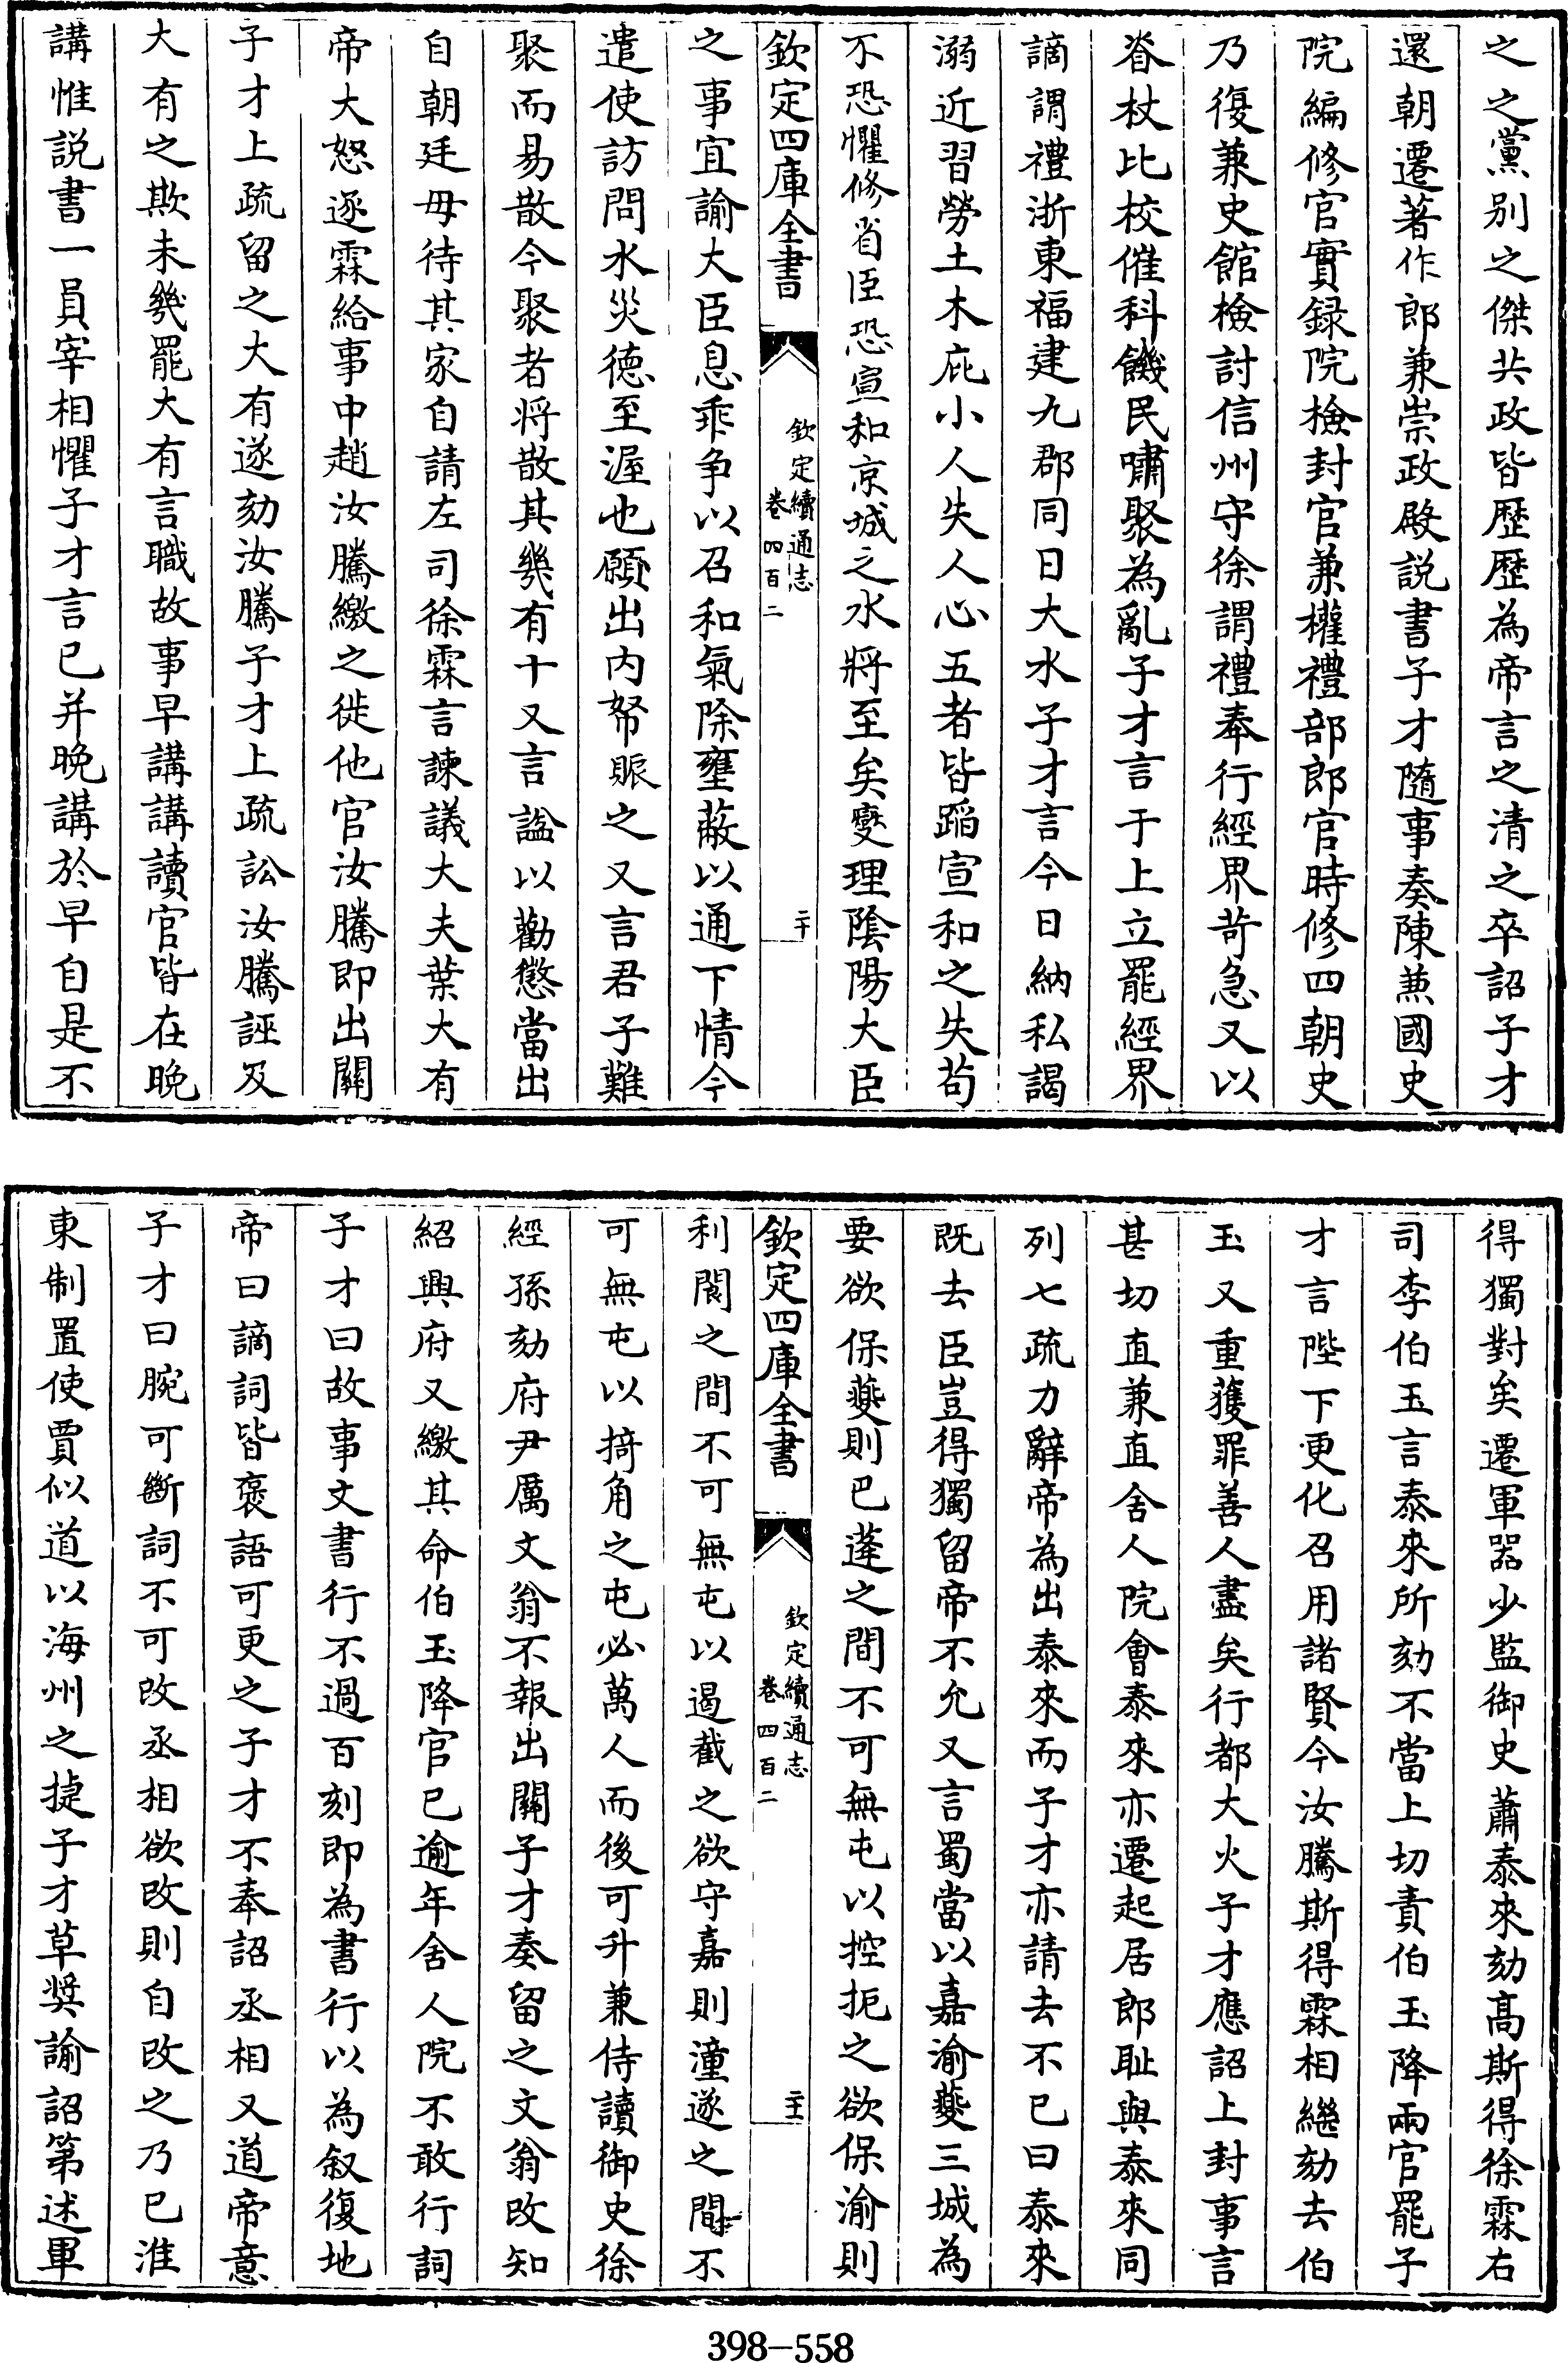 之之黨别之傑共政皆歴歴為帝言之清之卒詔子才
還朝遷著作郎兼崇政殿説書子才隨事奏陳兼國史
院編修官實録院檢封官兼權禮部郎官時修四朝史
乃復兼史館檢討信州守徐謂禮奉行經界苛急又以
脊杖比校催科饑民嘯聚為亂子才言于上立罷經界
謫謂禮浙東福建九郡同日大水子才言今日納私謁
溺近習勞土木庇小人失人心五者皆蹈宣和之失苟
不恐懼修省臣恐宣和京城之水將至矣變理陰陽大臣
欽定四庫全書
欽定續通志
卷四百二
二十
之事宜諭大臣息乖争以召和氣除壅蔽以通下情今
遣使訪問水災德至渥也願出内帑賑之又言君子難
聚而易散今聚者將散其幾有十又言諡以勸懲當出
自朝廷毋待其家自請左司徐霖言諫議大夫葉大有
帝大怒逐霖給事中趙汝騰繳之徙他官汝騰即出關
子才上疏留之大有遂劾汝騰子才上疏訟汝騰誣及
大有之欺未幾罷大有言職故事早講講讀官皆在晚
講惟説書一員宰相懼子才言已并晩講於早自是不
得獨對矣遷軍器少監御史蕭泰來劾髙斯得徐霖右
司李伯玉言泰來所劾不當上切責伯玉降兩官罷子
才言陛下更化召用諸賢今汝騰斯得霖相繼劾去伯
玉又重獲罪善人盡矣行都大火子才應詔上封事言
甚切直兼直舍人院會泰來亦遷起居郎耻與泰來同
列七疏力辭帝為出泰來而子才亦請去不已曰泰來
既去臣豈得獨留帝不允又言蜀當以嘉渝夔三城為
要欲保夔則巴蓬之間不可無屯以控扼之欲保渝則
欽定四庫全書
欽定續通志
卷四百二
二十一
利閬之間不可無屯以遏截之欲守嘉則潼遂之間不
可無屯以掎角之屯必萬人而後可升兼侍讀御史徐
經孫劾府尹厲文翁不報出關子才奏留之文翁改知
紹興府又繳其命伯玉降官已逾年舍人院不敢行詞
子才曰故事文書行不過百刻即為書行以為叙復地
帝曰謫詞皆褒語可更之子才不奉詔丞相又道帝意
子才曰腕可斷詞不可改丞相欲改則自改之乃已淮
東制置使賈似道以海州之捷子才草奬諭詔第述軍
398-558